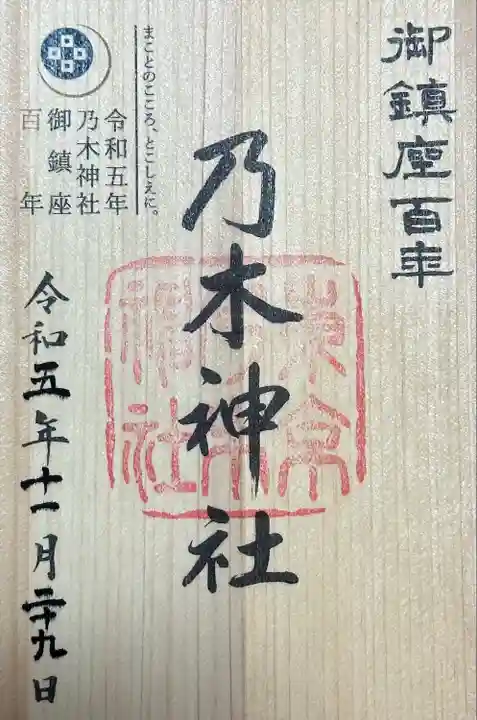 御鎮座百年
乃木神社
東京
乃木
神社
まことのこころ、とこしえに。
令和五年
乃木神社
御鎮座
百年
令和五年十一月二十九日